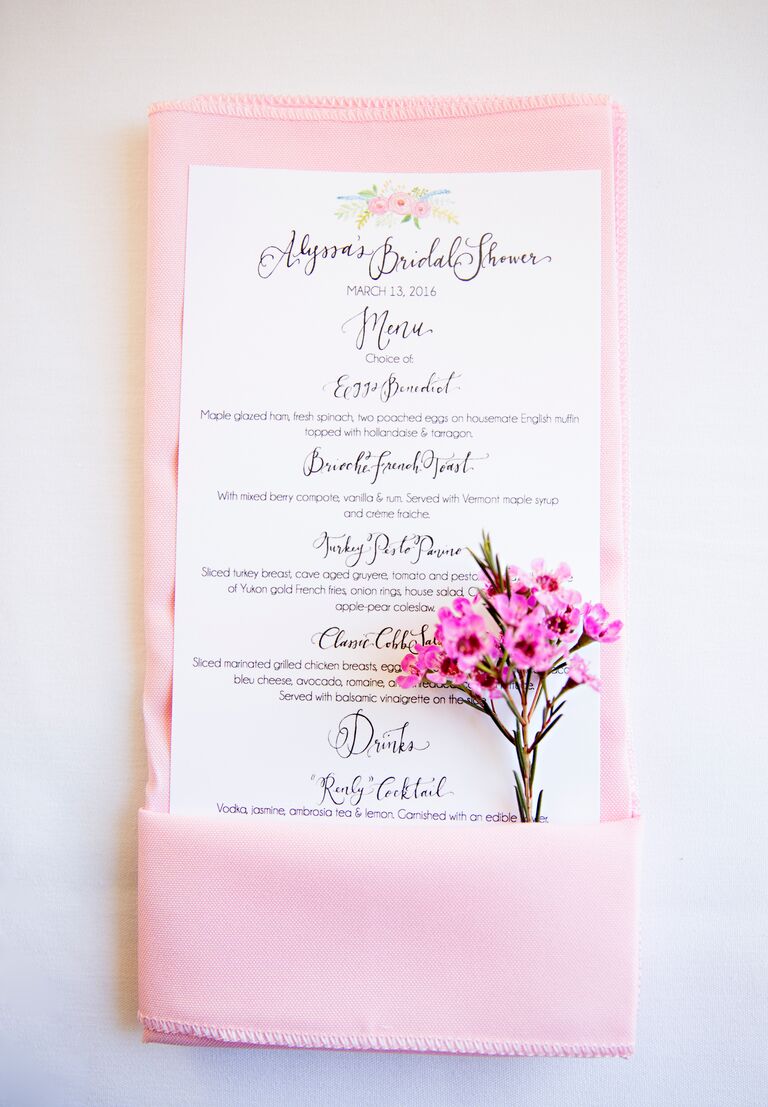 Alyssa's Bridal Shower
MARCH 13, 2016
Menu
Choice of:
Eggs Benedict
Maple glazed ham, fresh spinach, two poached eggs on housemate English muffin
topped with hollandaise & tarragon.
Brioche French Toast
With mixed berry compote, vanilla & rum. Served with Vermont maple syrup
and crème fraiche.
Turkey Pesto Panino
Sliced turkey breast, cave aged gruyere, tomato and pesto
of Yukon gold French fries, onion rings, house salad,
apple-pear coleslaw.
Classic Cobb
Sliced marinated grilled chicken breasts,
bleu cheese, avocado, romaine,
Served with balsamic vinaigrette on the
Drinks
"Renly" Cocktail
Vodka, jasmine, ambrosia tea & lemon. Garnished with an edible